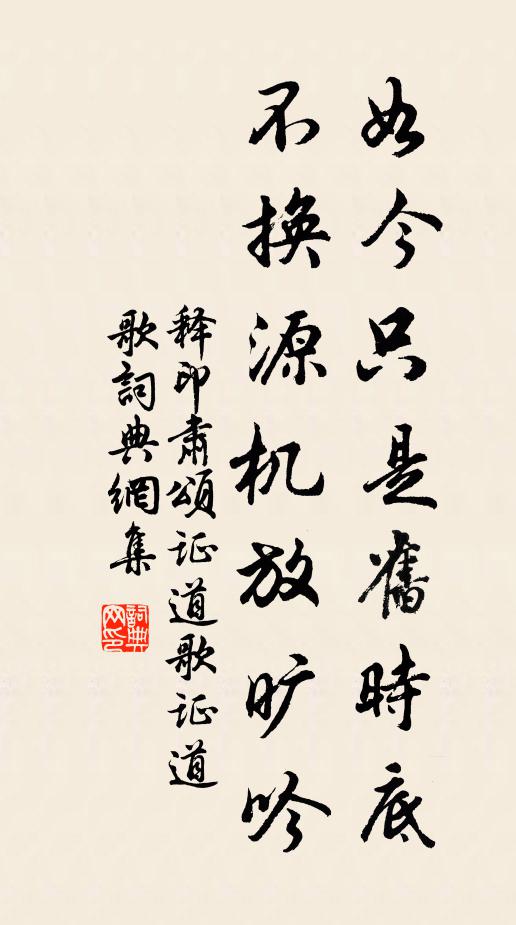 如今只是舊時底
不换源机放旷吟
释印肃頌证道歌证道
歌詞典網集
詞典网印